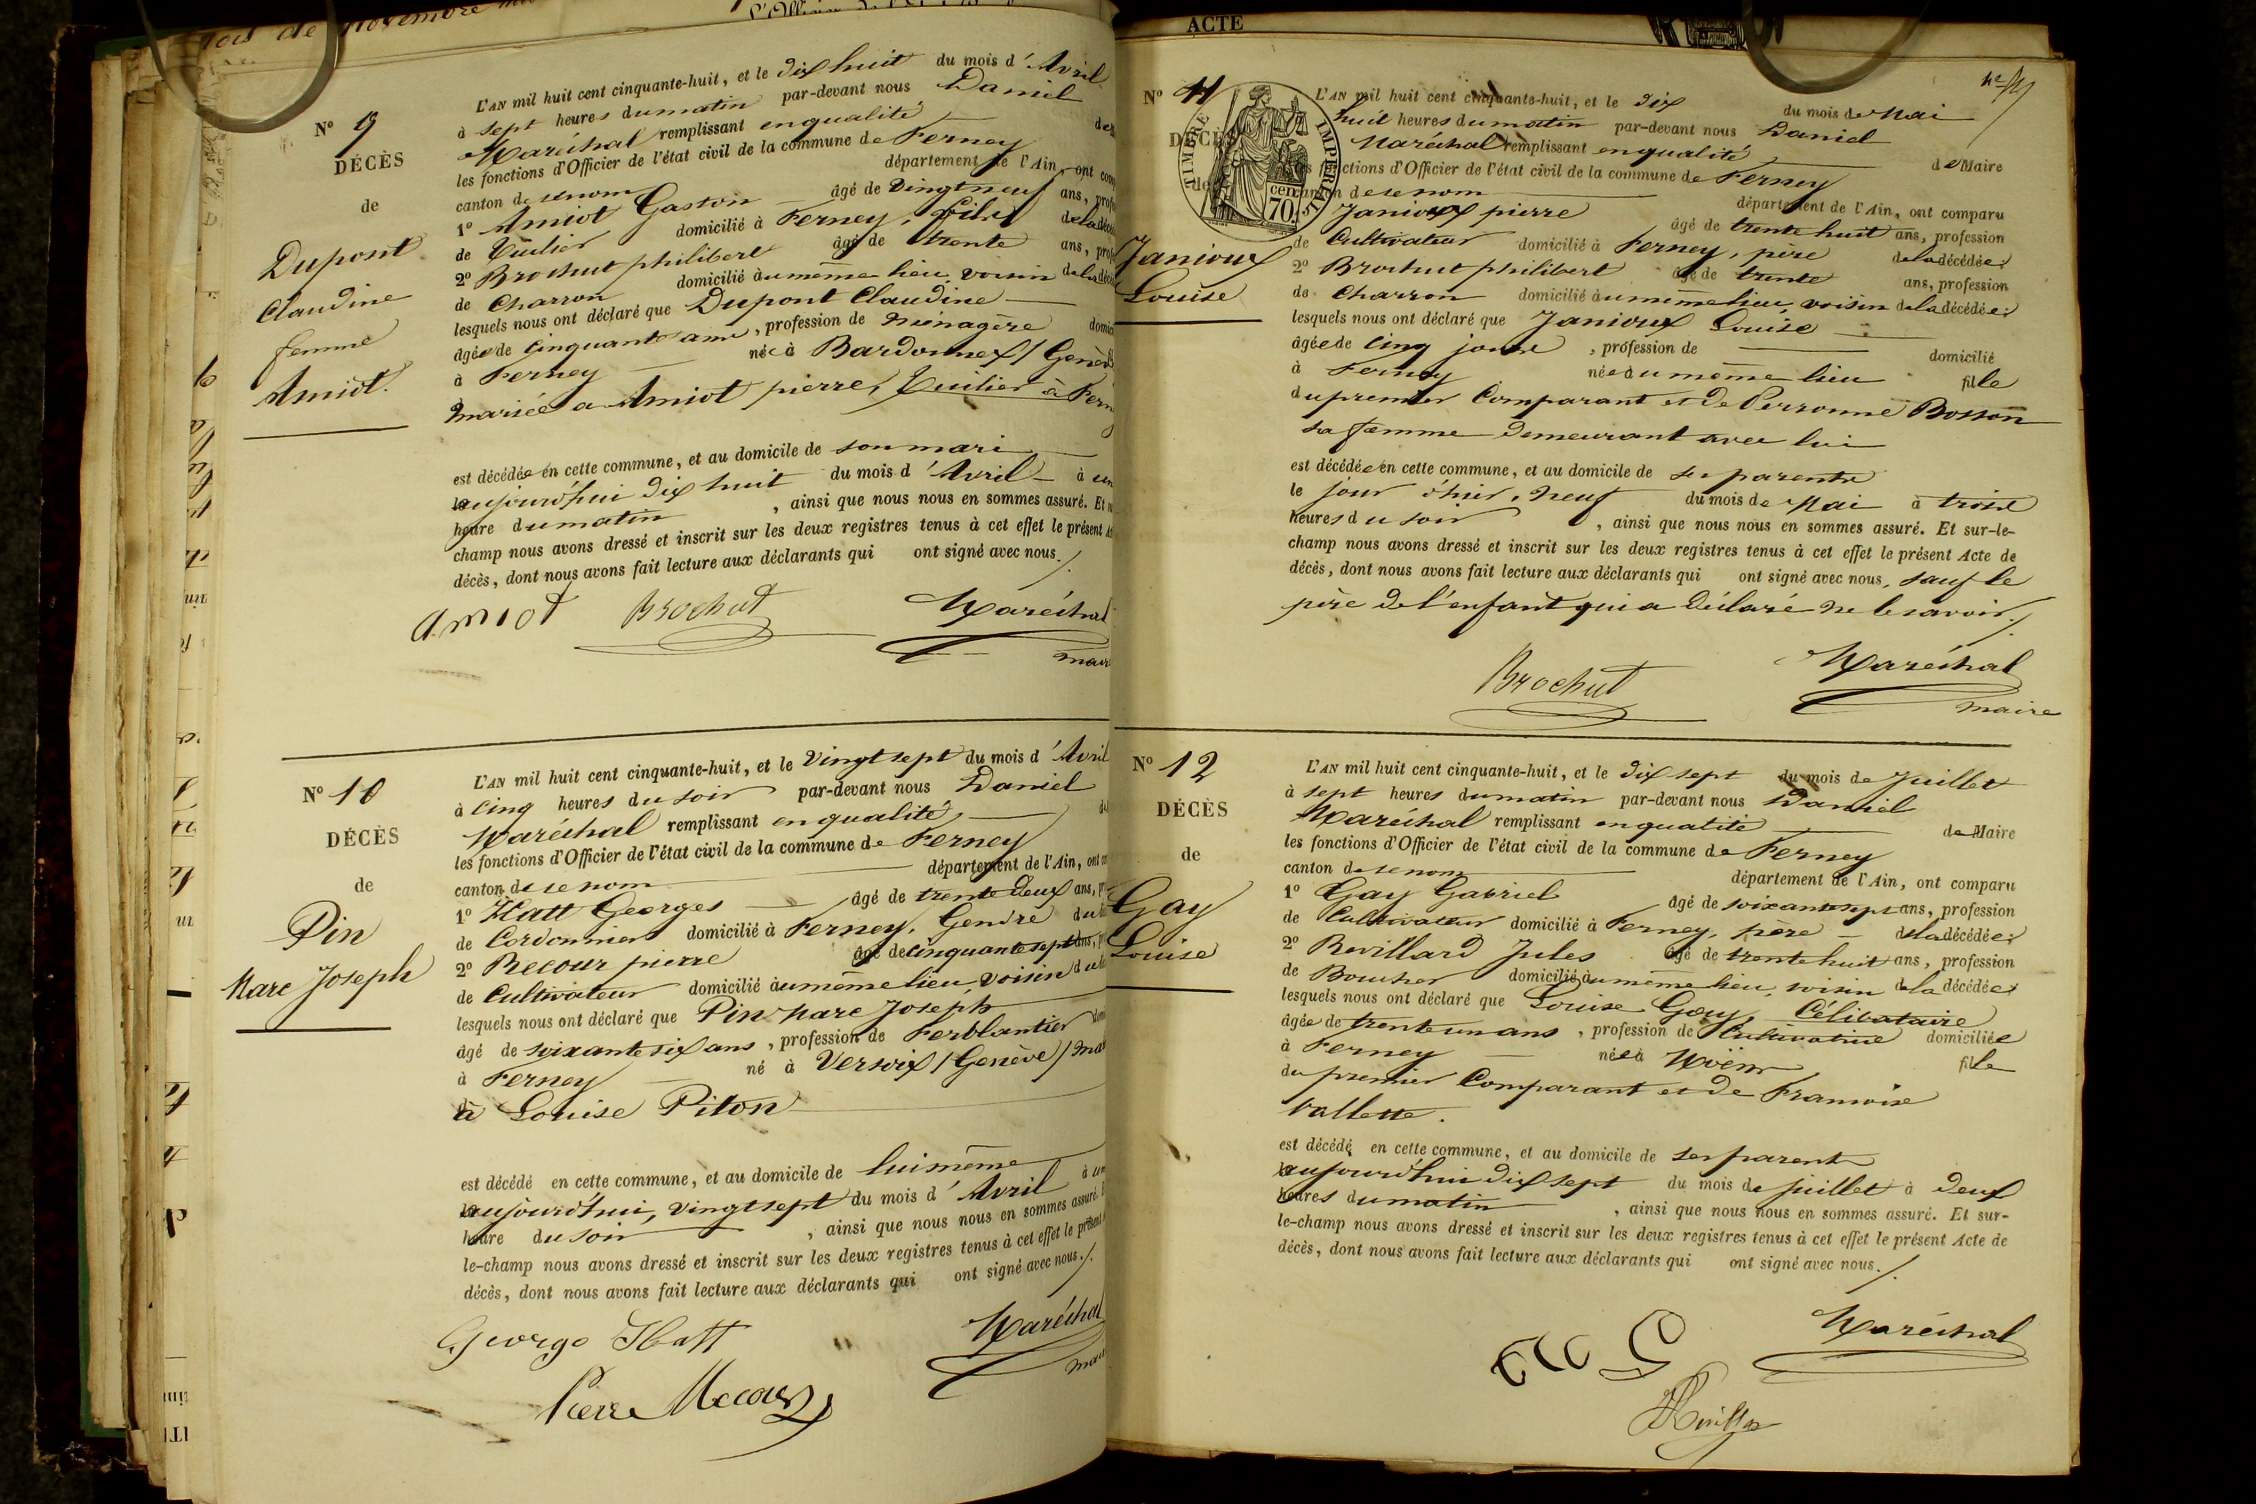 Nº 9
DÉCÈS
de
Dupont
Claudine
femme
Amiot.
L'AN mil huit cent cinquante-huit, et le dix huit du mois d'Avril
à sept heures du matin par-devant nous Daniel
Maréchal remplissant en qualité de
les fonctions d'Officier de l'état civil de la commune de Ferney
canton de ce nom département de l'Ain, ont
1º Amiot Gaston âgé de vingt neuf ans,
de Tuilier domicilié à Ferney, fils de la
2º Brochut philibert âgé de trente ans,
de Charron domicilié au même lieu, voisin de la
lesquels nous ont déclaré que Dupont Claudine
âgée de cinquante ans, profession de ménagère
à Ferney née à Bardonnex / Genève
mariée a Amiot pierre, Tuilier à
est décédée en cette commune, et au domicile de son mari
aujourd'hui dix huit du mois d'Avril à
heure du matin, ainsi que nous nous en sommes assuré. Et
champ nous avons dressé et inscrit sur les deux registres tenus à cet effet le présent
décès, dont nous avons fait lecture aux déclarants qui ont signé avec nous./.
amiot Brochut Maréchal
Nº 10
DÉCÈS
de
Pin
Marc Joseph
L'AN mil huit cent cinquante-huit, et le vingt sept du mois d'Avril
à cinq heures du soir par-devant nous Daniel
Maréchal remplissant en qualité,
les fonctions d'Officier de l'état civil de la commune de Ferney
canton de ce nom département de l'Ain, ont
1º Hatt Georges âgé de trente deux ans,
de Cordonnier domicilié à Ferney, Gendre du
2º Recour pierre âgé de cinquante sept ans,
de Cultivateur domicilié au même lieu, voisin du
lesquels nous ont déclaré que Pin Marc Joseph
âgé de soixante six ans, profession de Ferblantier
à Ferney né à Versoix / Genève /
à Louise Piton
est décédé en cette commune, et au domicile de lui même
aujourd'hui, vingt sept du mois d'Avril à
heure du soir, ainsi que nous nous en sommes assuré.
le-champ nous avons dressé et inscrit sur les deux registres tenus à cet effet le présent
décès, dont nous avons fait lecture aux déclarants qui ont signé avec nous./.
George Hatt Maréchal
Pierre
ACTE
Nº 11
DÉCÈS
de
Janioux
Louise
TIMBRE IMPÉRIAL
70 cen
L'AN mil huit cent cinquante-huit, et le dix du mois de Mai
huit heures du matin par-devant nous Daniel
Maréchal remplissant en qualité de Maire
les fonctions d'Officier de l'état civil de la commune de Ferney
canton de ce nom département de l'Ain, ont comparu
Janioux pierre âgé de trente huit ans, profession
de Cultivateur domicilié à Ferney, père de la décédée;
2º Brochut philibert âgé de trente ans, profession
de Charron domicilié au même lieu, voisin de la décédée;
lesquels nous ont déclaré que Janioux Louise
âgée de cinq jours, profession de domicilié
à Ferney née au même lieu fille
du premier Comparant et de Perronne Bosson
sa femme demeurant avec lui
est décédée en cette commune, et au domicile de ses parents
le jour d'hier, neuf du mois de Mai à trois
heures du soir, ainsi que nous nous en sommes assuré. Et sur-le-
champ nous avons dressé et inscrit sur les deux registres tenus à cet effet le présent Acte de
décès, dont nous avons fait lecture aux déclarants qui ont signé avec nous, sauf le
père de l'enfant qui a déclaré ne le savoir./.
Brochut Maréchal
maire
Nº 12
DÉCÈS
de
Gay
Louise
L'AN mil huit cent cinquante-huit, et le dix sept du mois de Juillet
à sept heures du matin par-devant nous Daniel
Maréchal remplissant en qualité de Maire
les fonctions d'Officier de l'état civil de la commune de Ferney
canton de ce nom département de l'Ain, ont comparu
1º Gay Gabriel âgé de soixante sept ans, profession
de Cultivateur domicilié à Ferney, père de la décédée;
2º Revillard Jules âgé de trente huit ans, profession
de Boucher domicilié au même lieu, voisin de la décédée;
lesquels nous ont déclaré que Louise Gay, Célibataire
âgée de trente un ans, profession de Cultivatrice domiciliée
à Ferney née à Moëns fille
du premier Comparant et de Francoise
Vallette.
est décédé en cette commune, et au domicile de ses parents
aujourd'hui dix sept du mois de juillet à deux
heures du matin, ainsi que nous nous en sommes assuré. Et sur-
le-champ nous avons dressé et inscrit sur les deux registres tenus à cet effet le présent Acte de
décès, dont nous avons fait lecture aux déclarants qui ont signé avec nous./.
Maréchal